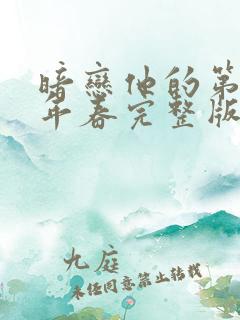 暗戀他的第
年春完整版
九庭
未任同意禁止转载